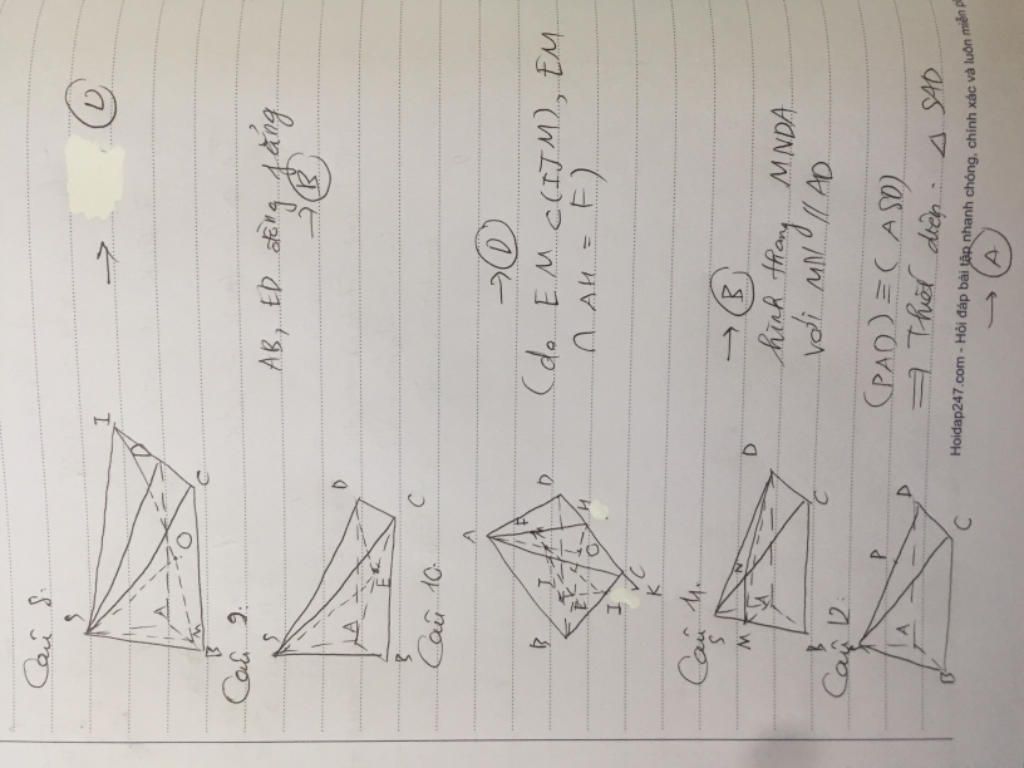 Câu 8:
S
I
A
D
O
M
B
C
→ D
Câu 9:
S
A
D
E
B
C
AB, ED đồng phẳng
→ B
Câu 10:
A
B
F
D
J
E
O
H
I
C
K
→ D
(do EM ⊂ (IJM), EM
∩ AH = F)
Câu 11:
S
M
N
D
B
C
→ B
hình thang MNDA
với MN // AD
Câu 12:
P
D
A
B
C
(PAD) ≡ (ASD)
⇒ Thiết diện: Δ SAD
→ A
Hoidap247.com - Hỏi đáp bài tập nhanh chóng, chính xác và luôn miễn